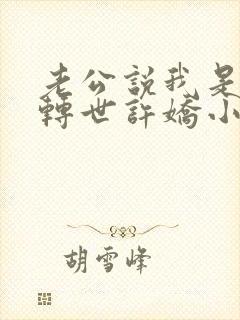 老公説我是
轉世許嬌小
胡雪峰